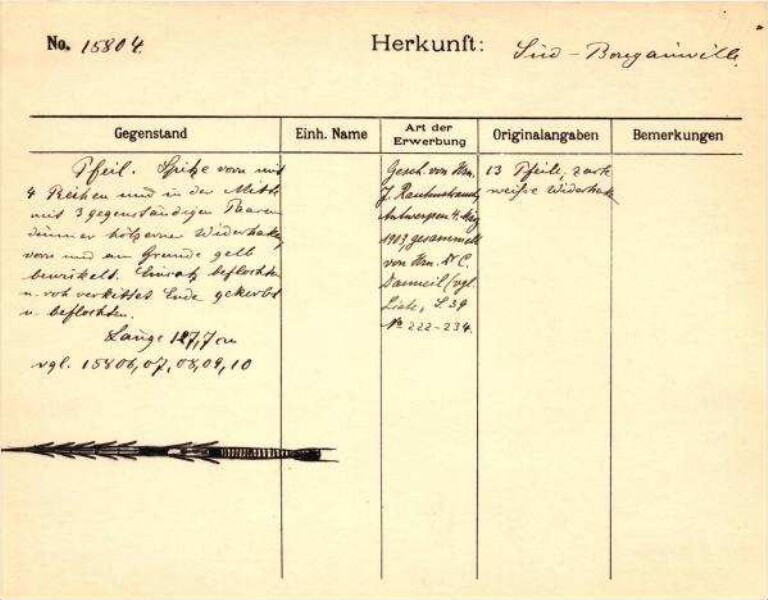 No. 15804.
Herkunft: Süd-Bougainville
Gegenstand
Einh. Name
Art der Erwerbung
Originalangaben
Bemerkungen
Pfeil. Spitze vorn mit
4 Reihen und in der Mitte
mit 3 gegenständigen Paaren
dünner hölzerner Widerhaken,
vorn und am Grunde gelb
bewickelt. Einsatz beflochten
u. rot verkittet Ende gekerbt
u. beflochten.
Länge 127,7 cm
vgl. 15806,07,08,09,10
Gesch. von Hrn.
J. Rautenstrauch,
Antwerpen 4. May
1903, gesammelt
von Hrn. Dr C.
Danneil (vgl.
Liste, S. 39
No 222-234.
13 Pfeile, zarte
weisse Widerhaken